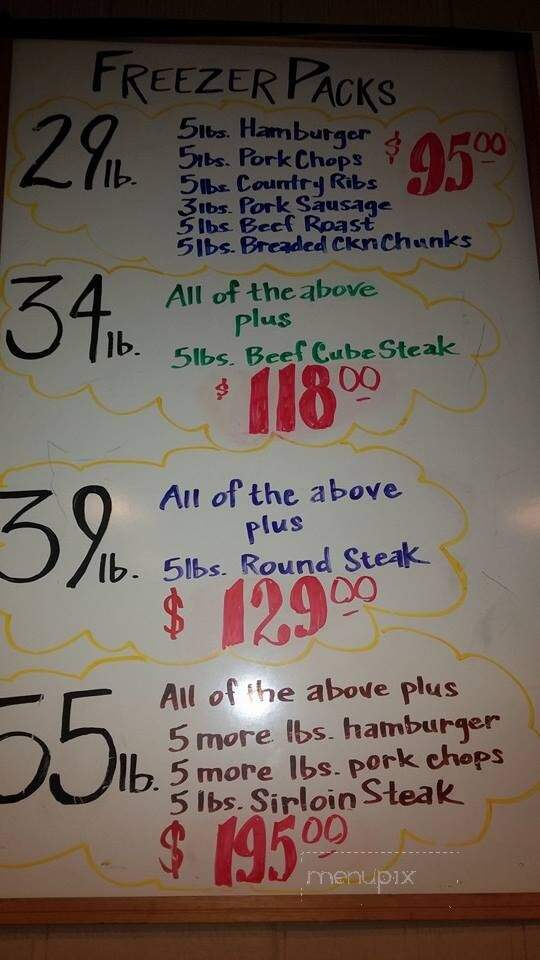 FREEZER PACKS
29 lb.
5lbs. Hamburger
$ 95.00
5lbs. Pork Chops
5lbs. Country Ribs
3lbs. Pork Sausage
5lbs. Beef Roast
5lbs. Breaded Ckn Chunks
34 lb.
All of the above
plus
5lbs. Beef Cube Steak
$ 118.00
39 lb.
All of the above
plus
5lbs. Round Steak
$ 129.00
55 lb.
All of the above plus
5 more lbs. hamburger
5 more lbs. pork chops
5 lbs. Sirloin Steak
$ 195.00
menupix